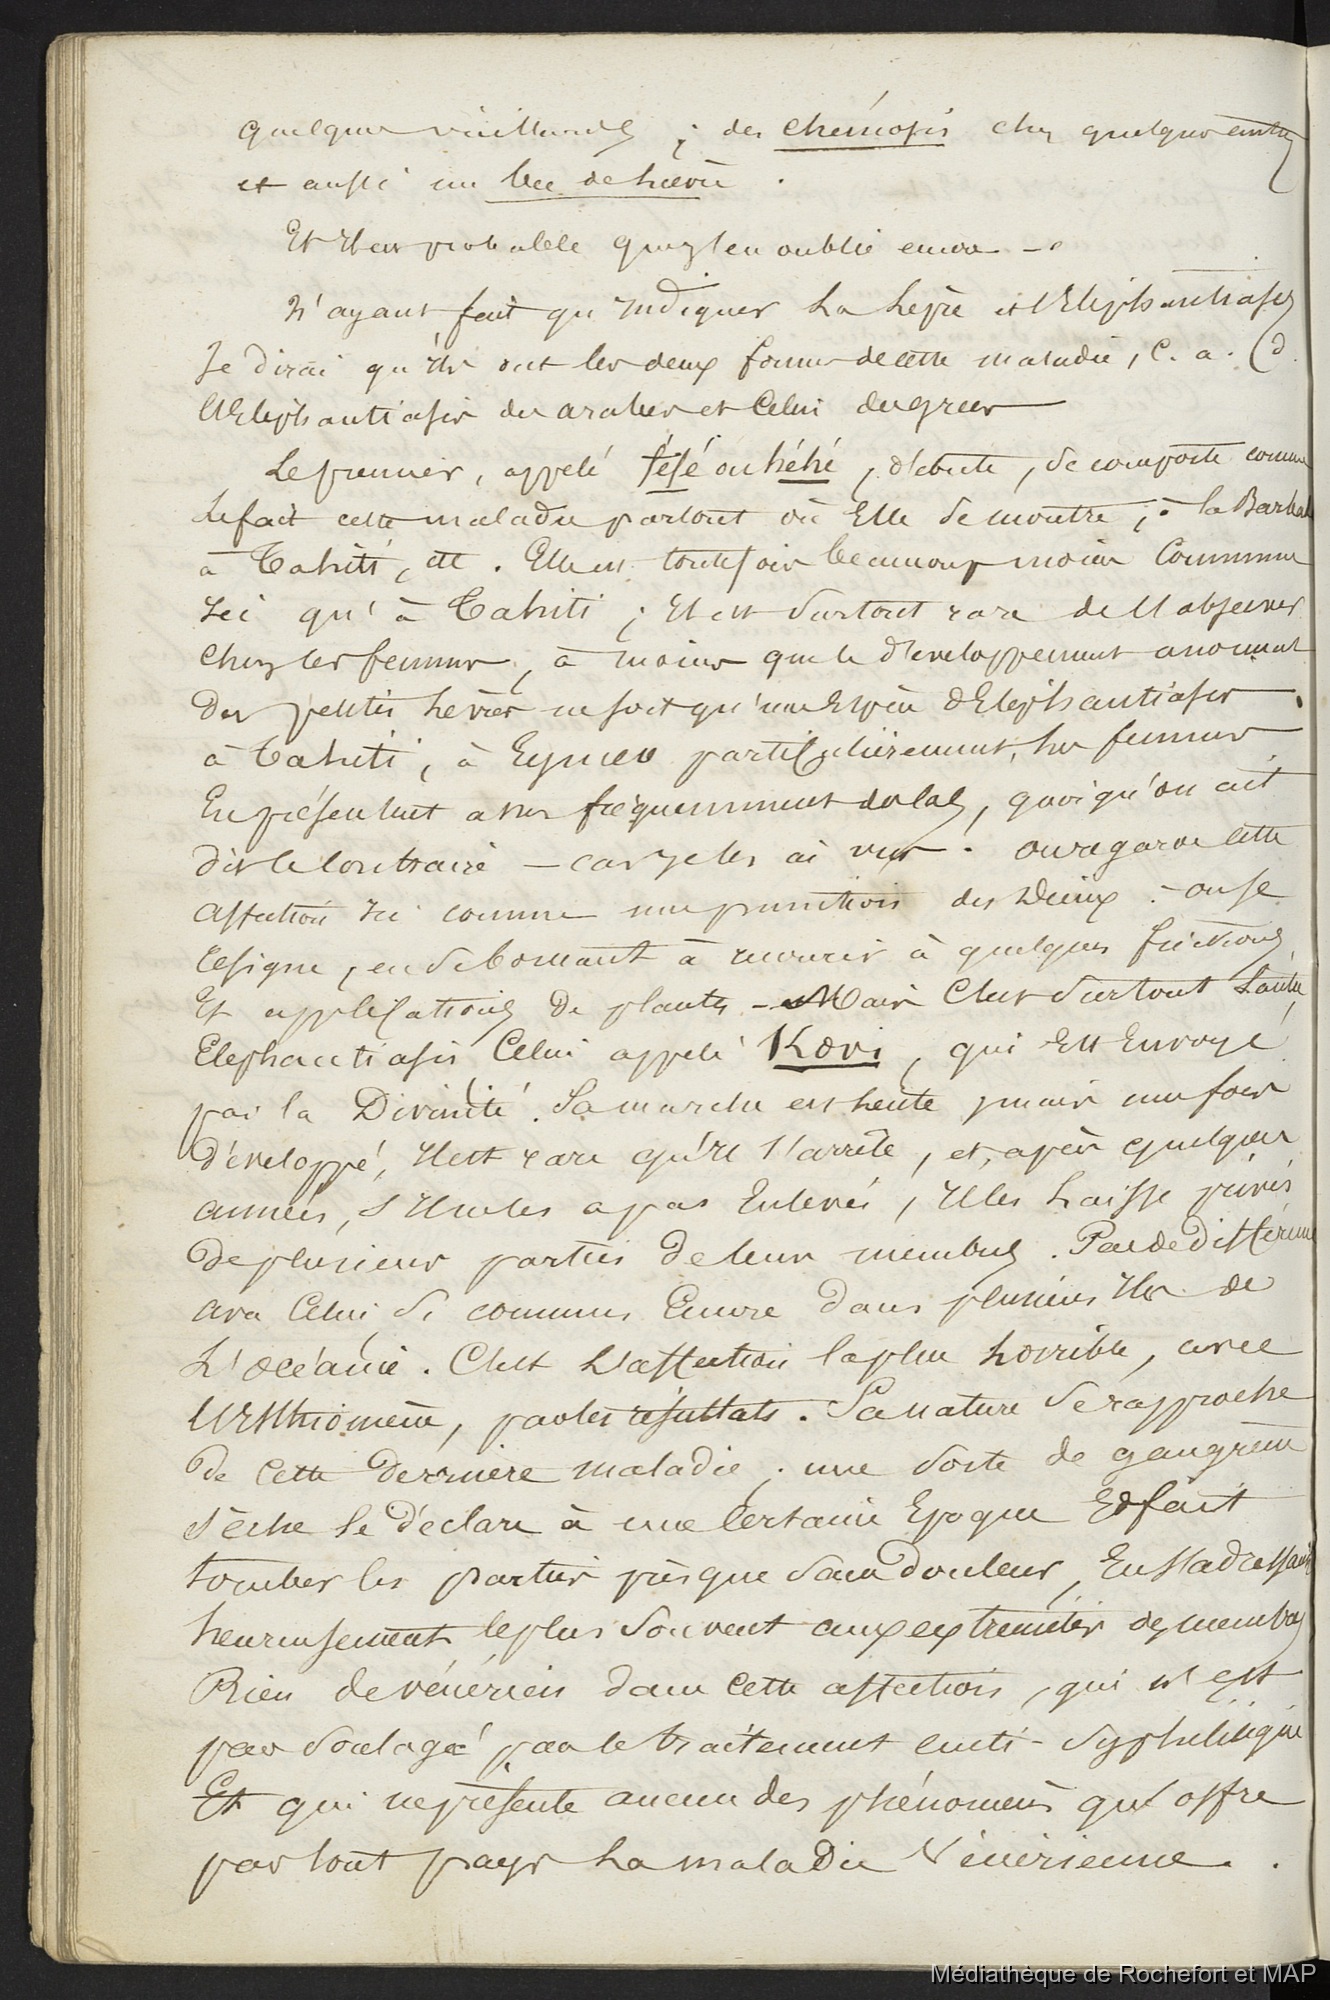 quelques vieillards ; des chémosis chez quelques autres
et aussi un bec de lièvre .
Et il est probable que j'en oublie encore —
N'ayant fait qu'indiquer la lèpre et l'Elephantiasis
Je dirai qu'ils ont les deux formes de cette maladie, C. a. d.
l'Elephantiasis des arabes et Celui des grecs —
Le premier, appelé féfé ou héhé, débute, se comporte comme
le fait cette maladie partout où Elle se montre, à la Barbade
à Tahiti, etc. Elle est toutefois beaucoup moins Commune
ici qu'à Tahiti ; Il est surtout rare de l'observer
chez les femmes, à moins que le développement anormal
des petites lèvres ne soit qu'une Espèce d'Elephantiasis .
à Tahiti, à Eymeo particulièrement, les femmes
En présentent assez fréquemment des cas, quoiqu'on ait
dit le Contraire — car je les ai vus . on regarde cette
affection ici comme une punition des Dieux . on se
résigne, en se bornant à recourir à quelques frictions
Et applications de plantes — Mais C'est surtout l'autre
Elephantiasis Celui appelé Kovi, qui Est Envoyé
par la Divinité. Sa marche est lente mais une fois
développé, il est rare qu'il s'arrête, et, après quelques
années, s'il ne les a pas Enlevés, Il les laisse privés
de plusieurs parties de leurs membres. Pas de différence
avec Celui si commun Encore dans plusieurs Iles de
L'océanie. C'est l'affection la plus horrible, avec
l'Esthiomène, par les résultats. Sa nature se rapproche
de cette dernière maladie ; une sorte de gangrène
sèche se déclare à une Certaine Epoque Et fait
tomber les parties presque sans douleur, En s'adressant
heureusement le plus souvent aux extrémités des membres
Rien de vénérien dans cette affection, qui n'est
pas soulagée par le traitement anti-syphilitique
Et qui ne présente aucun des phénomènes qu'offre
partout pays la maladie Vénérienne .
Médiathèque de Rochefort et MAP